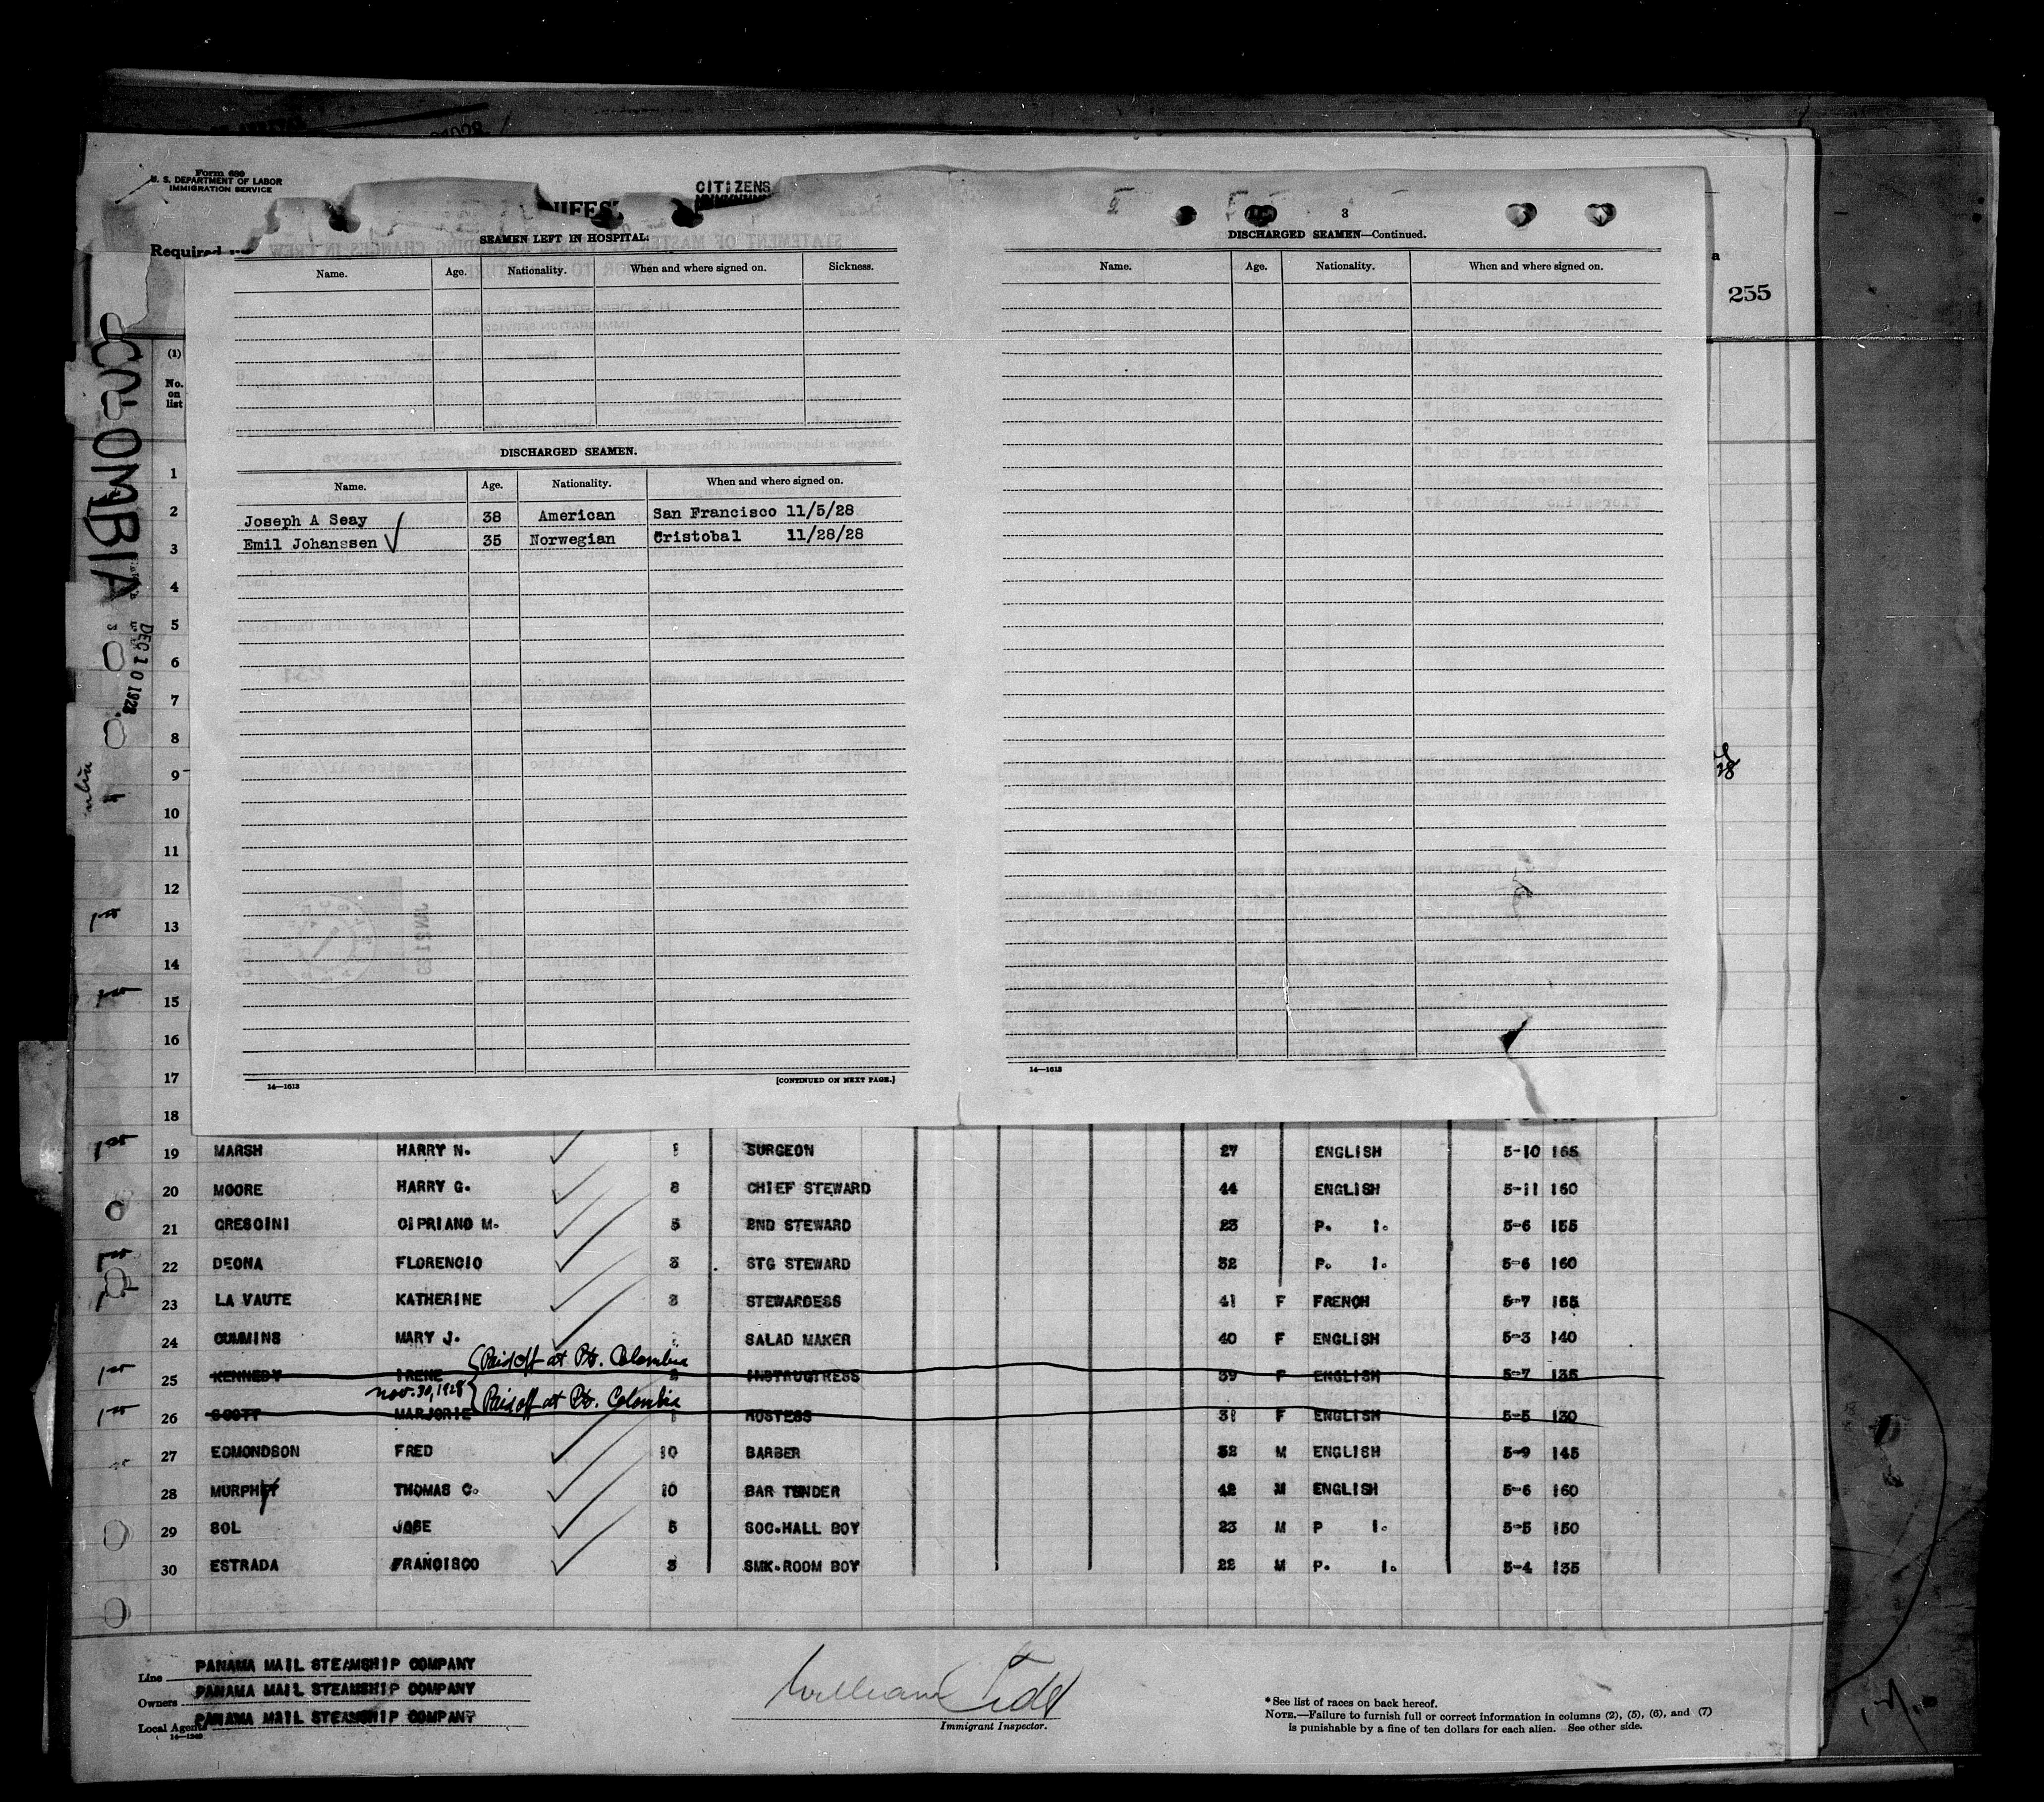 Form 680
U. S. DEPARTMENT OF LABOR
IMMIGRATION SERVICE
CITIZENS
Required
255
COLOMBIA
DEC 10 1928
(1)
No.
on
list
SEAMEN LEFT IN HOSPITAL:
Name. Age. Nationality. When and where signed on. Sickness.
DISCHARGED SEAMEN.
Name. Age. Nationality. When and where signed on.
Joseph A Seay 38 American San Francisco 11/5/28
Emil Johanssen 35 Norwegian Cristobal 11/28/28
14—1613
[CONTINUED ON NEXT PAGE.]
3
DISCHARGED SEAMEN—Continued.
Name. Age. Nationality. When and where signed on.
14—1613
1
2
3
4
5
6
7
8
9
10
11
12
13
14
15
16
17
18
19 MARSH HARRY N. SURGEON 27 ENGLISH 5-10 165
20 MOORE HARRY G. 8 CHIEF STEWARD 44 ENGLISH 5-11 160
21 CRESCINI CIPRIANO M. 5 2ND STEWARD 23 P. I. 5-6 155
22 DEONA FLORENCIO 3 STG STEWARD 32 P. I. 5-6 160
23 LA VAUTE KATHERINE 3 STEWARDESS 41 F FRENCH 5-7 155
24 CUMMINS MARY J. SALAD MAKER 40 F ENGLISH 5-3 140
Paid off at Pto. Colombia
25 KENNEDY IRENE INSTRUCTRESS 39 F ENGLISH 5-7 135
Nov. 30, 1928 Paid off at Pto. Colombia
26 SCOTT MARJORIE HOSTESS 31 F ENGLISH 5-5 130
27 EDMONDSON FRED 10 BARBER 32 M ENGLISH 5-9 145
28 MURPHY THOMAS C. 10 BAR TENDER 42 M ENGLISH 5-6 160
29 SOL JOSE 5 SOC.HALL BOY 23 M P I. 5-5 150
30 ESTRADA FRANCISCO 3 SMK.ROOM BOY 22 M P. I. 5-4 135
Line PANAMA MAIL STEAMSHIP COMPANY
Owners PANAMA MAIL STEAMSHIP COMPANY
Local Agents PANAMA MAIL STEAMSHIP COMPANY
14—1240
William
Immigrant Inspector.
* See list of races on back hereof.
NOTE.—Failure to furnish full or correct information in columns (2), (5), (6), and (7)
is punishable by a fine of ten dollars for each alien. See other side.